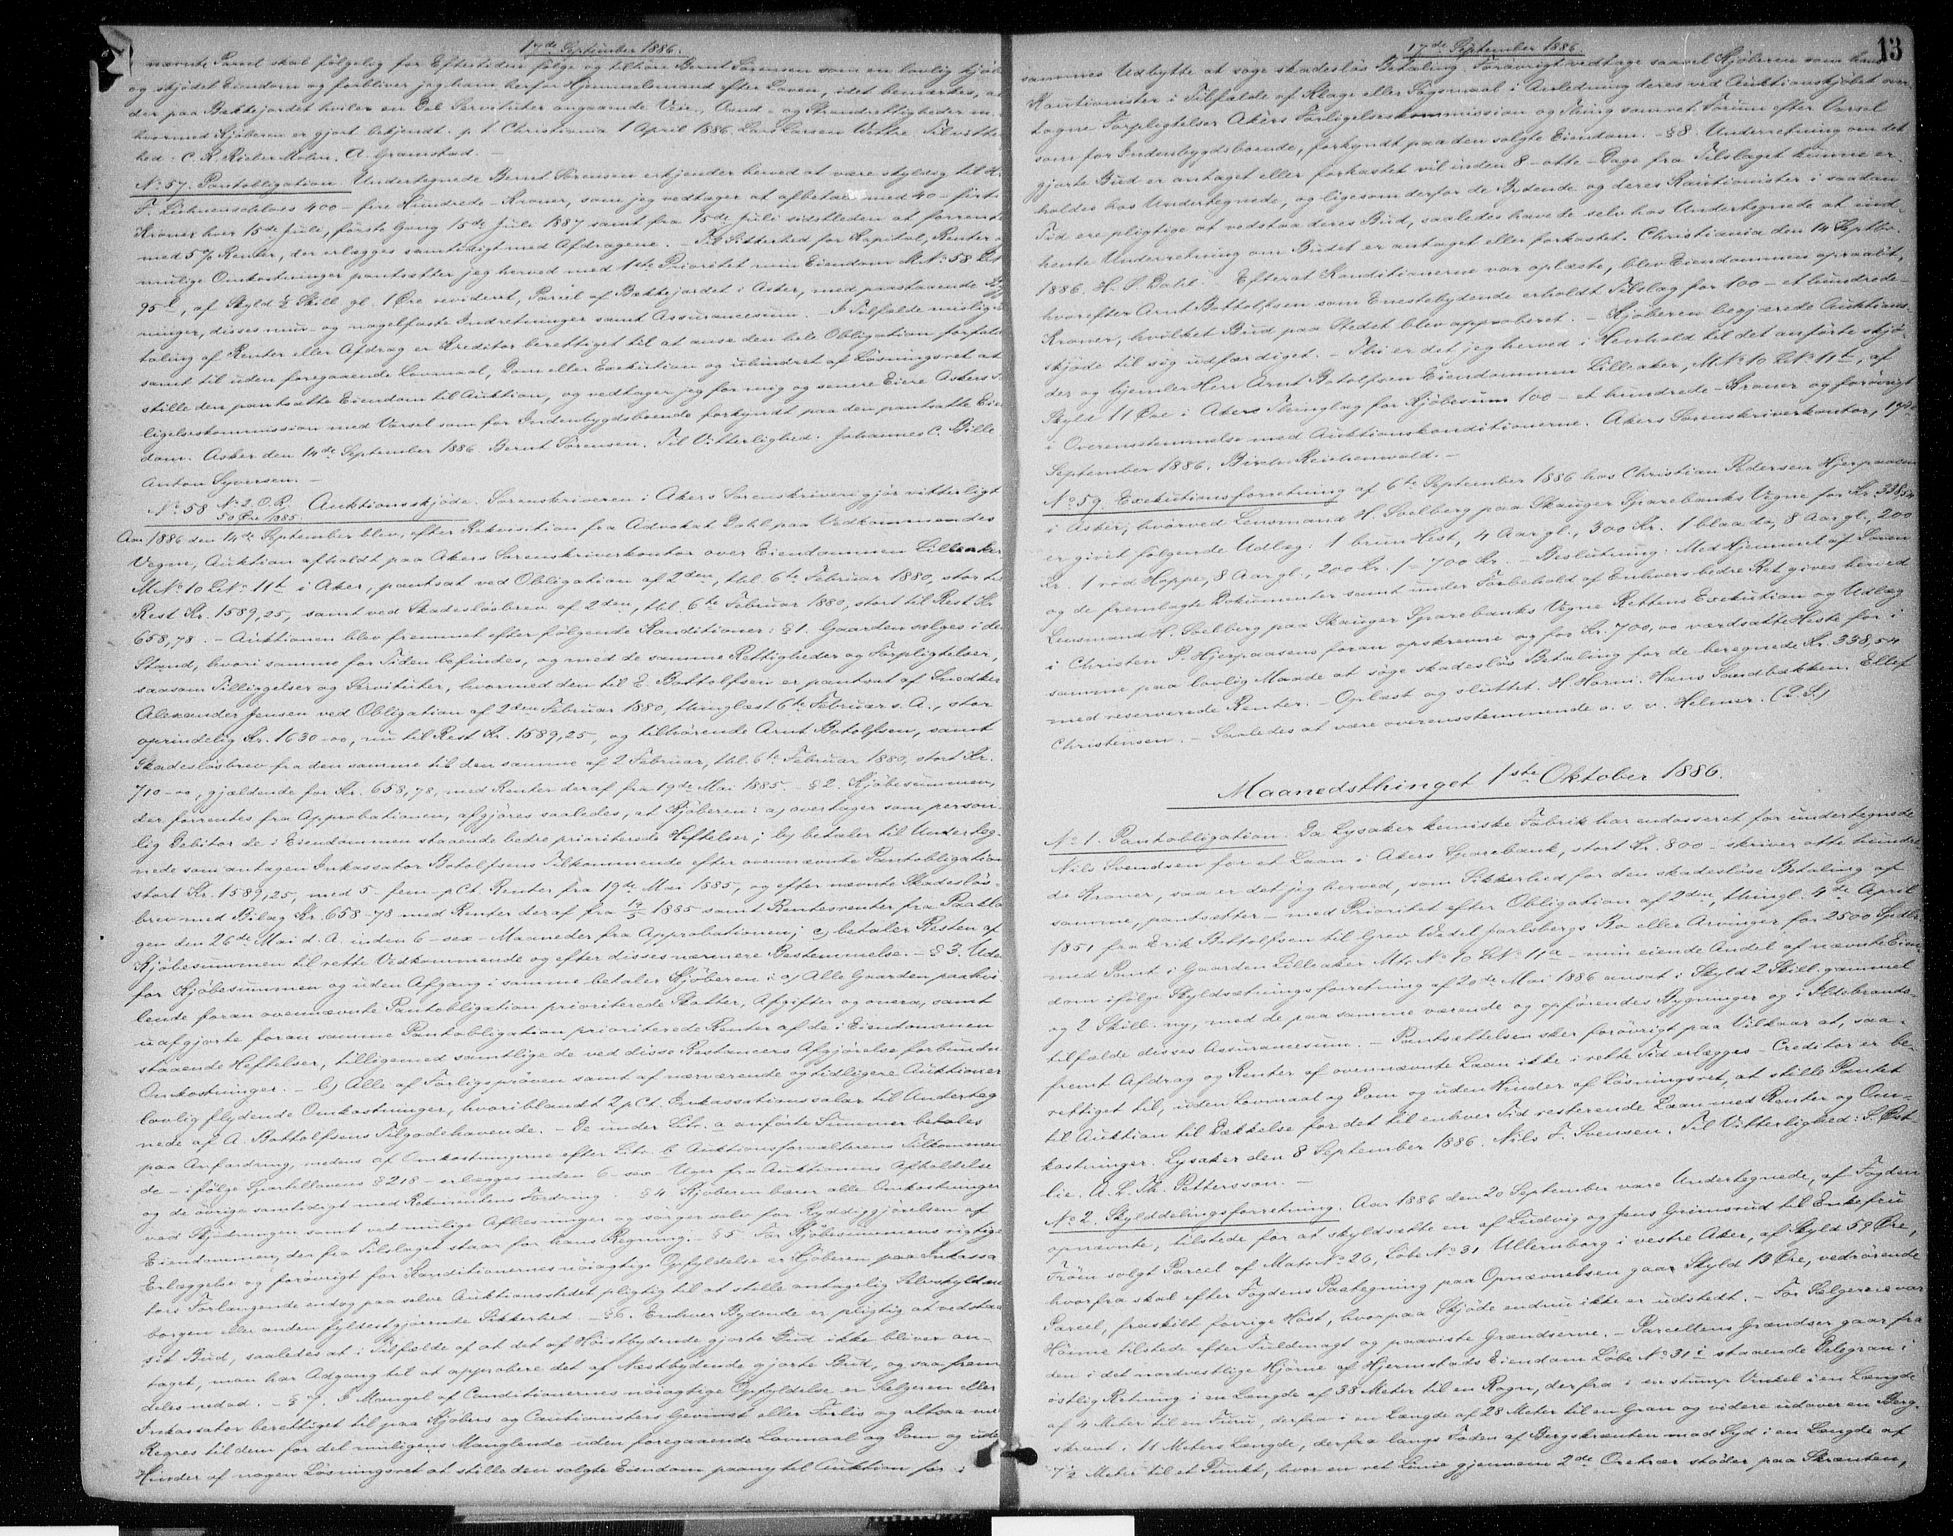 17de September 1886.
nævnte Parcel skal følgelig for Eftertiden følge og tilhøre Bernt Sørensen som en lovlig kjøbt
og skjødet Eiendom og forbliver jeg ham herfor Hjemmelsmand efter Loven, idet bemærkes, at
der paa Bakkejordet hviler en Del Servituter angaaende Veie, Vand- og Strandrettigheder m.
hvormed Kjøberen er gjort bekjendt. p. t. Christiania 1 April 1886. Lars Larsen Wettre. Til vitterlig-
hed: C. A. Grønstad. —
No 57. Pantobligation. Undertegnede Bernt Sørensen erkjender herved at være skyldig til H.
400 - fire Hundrede - Kroner, som jeg vedtager at afbetale med 40 - firti
Kroner hver 15de Juli, første Gang 15de Juli 1887 samt fra 15de Juli sidstleden at forrente
med 5 % Renter, der erlægges samtidigt med Afdragene. — Til Sikkerhed for Kapital, Renter og
mulige Omkostninger pantsætter jeg herved med 1ste Prioritet min Eiendom M. No 58 L. No
95, af Skyld ½ Skill. gl. 1 Øre revideret, Parcel af Bakkejordet i Asker, med paastaaende Byg-
ninger, disses mur- og nagelfaste Indretninger samt Assurancesum. — I Tilfælde mislig Be-
taling af Renter eller Afdrag er Kreditor berettiget til at anse den hele Obligation forfalden
samt til uden foregaaende Lovmaal, Dom eller Exekution og uhindret af Løsningsret at
stille den pantsatte Eiendom til Auktion, og vedtager jeg for mig og senere Eiere Askers For-
ligelseskommission med Varsel som for Indenbygdsboende forkyndt paa den pantsatte Eien-
dom. Asker den 14de September 1886. Bernt Sørensen. Til Vitterlighed: Johannes C. Bille
Anton Syversen. —
No 58 No 2. O. R. 50 Øre 1885 Auktionsskjøde. Sorenskriveren i Akers Sorenskriveri gjør vitterligt
Aar 1886 den 14de September blev, efter Rekvisition fra Advokat Dahl paa Vedkommendes
Vegne, Auktion afholdt paa Akers Sorenskriverkontor over Eiendommen Lilleaker
M. No 10 L. No 11t i Aker, pantsat ved Obligation af 2den, thl. 6te Februar 1880, stor til
Rest Kr. 1589,25, samt ved Skadesløsbrev af 2den, thl. 6te Februar 1880, stort til Rest Kr.
658,78. — Auktionen blev fremmet efter følgende Konditioner: § 1. Gaarden sælges i den
Stand, hvori samme for Tiden befindes, og med de samme Rettigheder og Forpligtelser,
saasom Tilliggelser og Servituter, hvormed den til E. Bottolfsen er pantsat af Snedker
Alexander Jensen ved Obligation af 2den Februar 1880, thinglæst 6te Februar s. A., stor
oprindelig Kr. 1630-00, nu til Rest Kr. 1589,25, og tilhørende Arnt Botolfsen, samt
Skadesløsbrev fra den samme til den samme af 2 Februar, thl. 6te Februar 1880, stort Kr.
710-00, gjældende for Kr. 658,78, med Renter deraf fra 19de Mai 1885. — § 2. Kjøbesummen,
der forrentes fra Approbationen, afgjøres saaledes, at Kjøberen: a) overtager som person-
lig Debitor de i Eiendommen staaende bedre prioriterede Heftelser; b) betaler til Underteg-
nede som antagen Inkassator Botolfsens Tilkommende efter ovennævnte Pantobligation
stort Kr. 1589,25, med 5 - fem - pCt. Renter fra 19de Mai 1885, og efter nævnte Skadesløs-
brev med Bilag Kr. 658-78 med Renter deraf fra 19/5 1885 samt Rentesrenter fra Paakla-
gen den 26de Mai d. A. inden 6 - sex - Maaneder fra Approbationen; c) betaler Resten af
Kjøbesummen til rette Vedkommende og efter disses nærmere Bestemmelse. — § 3. Uden-
for Kjøbesummen og uden Afgang i samme betaler Kjøberen: a) Alle Gaarden paahvi-
lende foran ovennævnte Pantobligation prioriterede Skatter, Afgifter og onera, samt
uafgjorte foran samme Pantobligation prioriterede Renter af de i Eiendommen
staaende Heftelser, tilligemed samtlige de ved disse Restancers Afgjørelse forbundne
Omkostninger. — b) Alle af Forligsprøven samt af nærværende og tidligere Auktioner
lovlig flydende Omkostninger, hvoriblandt 2 pCt. Inkassationssalær til Underteg-
nede af A. Bottolfsens Tilgodehavende. — De under Litr. a anførte Summer betales
paa Anfordring, medens af Omkostningerne efter Litr. b Auktionsforvalterens Tilkommen-
de - ifølge Sportellovens § 218 - erlægges inden 6 - sex - Uger fra Auktionens Afholdelse
og de øvrige samtidigt med Rekvirentens Fordring. § 4. Kjøberen bærer alle Omkostninger
ved Skjødningen samt ved mulige Aflæsninger og sørger selv for Ryddiggjørelsen af
Eiendommen, der fra Tilslaget staar for hans Regning. — § 5. For Kjøbesummens rigtige
Erlæggelse og forøvrigt for Konditionernes nøiagtige Opfyldelse er Kjøberen paa Inkassa-
tors Forlangende endog paa selve Auktionsstedet pligtig til at stille antagelig Selvskyldner-
borgen eller anden fyldestgjørende Sikkerhed. — § 6. Enhver Bydende er pligtig at vedstaa
sit Bud, saaledes at i Tilfælde af at det af Høistbydende gjorte Bud ikke bliver an-
taget, man har Adgang til at approbere det af Næstbydende gjorte Bud, og saa frem-
deles nedad. — § 7. I Mangel af Conditionernes nøiagtige Opfyldelse er Sælgeren eller
Inkassator berettiget til paa Kjøbers og Cautionisters Gevinst eller Forlis og altsaa med
Regres til dem for det muligens Manglende uden foregaaende Lovmaal og Dom og uden
Hinder af nogen Løsningsret at stille den solgte Eiendom paany til Auktion for i
17de September 1886.
13
sammes Udbytte at søge skadesløs Betaling. Forøvrigt vedtage saavel Kjøberen som hans
Kautionister i Tilfælde af Klage eller Søgsmaal i Anledning deres ved Auktionskjøbet over-
tagne Forpligtelser Akers Forligelseskommission og Thing samvet Forum efter Varsel
som for Indenbygdsboende, forkyndt paa den solgte Eiendom. — § 8. Underretning om det
gjorte Bud er antaget eller forkastet vil inden 8 - otte - Dage fra Tilslaget kunne er-
holdes hos Undertegnede, og ligesom derfor de Bydende og deres Kautionister i saadan
Tid ere pligtige at vedstaa deres Bud, saaledes have de selv hos Undertegnede at ind-
hente Underretning om Budet er antaget eller forkastet. Christiania den 14 Septbr.
1886. H. S. Dahl. — Efterat Konditionerne var oplæste, blev Eiendommen opraabt,
hvorefter Arnt Bottolfsen som Enestebydende erholdt Tilslag for 100 - et hundrede -
Kroner, hvilket Bud paa Stedet blev approberet. — Kjøberen begjærede Auktions-
skjøde til sig udfærdiget. — Thi er det jeg herved i Henhold til det anførte skjø-
der og hjemler Herr Arnt Botolfsen Eiendommen Lilleaker, M. No 10 L. No 11t, af
Skyld 11 Øre i Akers Thinglag for Kjøbesum 100 - et hundrede - Kroner og forøvrigt
i Overensstemmelse med Auktionskonditionerne. Akers Sorenskriverkontor, 17de
September 1886. Birch-Reichenwald. —
No 59. Exekutionsforretning af 6te September 1886 hos Christian Pedersen Hjerpaasen
i Asker, hvorved Lensmand H. Solberg paa Skauger Sparebanks Vegne for Kr. 338,54
er givet følgende Udlæg: 1 brun Hest, 4 Aar gl., 300 Kr. 1 blaa do, 8 Aar gl., 200
Kr. 1 rød Hoppe, 8 Aar gl., 200 Kr. /= 700 Kr. — Beslutning: Med Hjemmel af Loven
og de fremlagte Dokumenter samt under Forbehold af Enhvers bedre Ret gives herved
Lensmand H. Solberg paa Skauger Sparebanks Vegne Rettens Exekution og Udlæg
i Christen P. Hjerpaasens foran opskrevne og for Kr. 700,00 værdsatte Heste for i
samme paa lovlig Maade at søge skadesløs Betaling for de beregnede Kr. 338,54
med reserverede Renter. — Oplæst og sluttet. H. Horni. Hans Sandbakken. Ellef
Christensen. — Saaledes at være overensstemmende o. s. v. Helmer. (L. S.)
Maanedsthinget 1ste Oktober 1886.
No 1. Pantobligation. Da Lysaker kemiske Fabrik har endosseret for undertegnede
Nils Svendsen for et Laan i Akers Sparebank, stort Kr. 800 - skriver otte hundre-
de Kroner, saa er det jeg herved, som Sikkerhed for den skadesløse Betaling af
samme, pantsætter - med Prioritet efter Obligation af 2den, thingl. 4de April
1851 fra Erik Bottolfsen til Grev Wedel Jarlsbergs Bo eller Arvinger for 2500 Spdlr.
med Pant i Gaarden Lilleaker Mtr. No 10 L. No 11a - min eiende Andel af nævnte Eien-
dom ifølge Skyldsætningsforretning af 20de Mai 1886 ansat i Skyld 2 Skill. gammel
og 2 Skill. ny, med de paa samme værende og opførendes Bygninger og i Ildebrands-
tilfælde disses Assurancesum. — Pantsættelsen sker forøvrigt paa Vilkaar at, saa-
fremt Afdrag og Renter af ovennævnte Laan ikke i rette Tid erlægges - Creditor er be-
rettiget til, uden Lovmaal og Dom og uden Hinder af Løsningsret, at stille Pantet
til Auktion til Dækkelse for det til enhver Tid resterende Laan med Renter og Om-
kostninger. Lysaker den 8 September 1886. Nils F. Svensen. Til Vitterlighed: S. Øst-
lie. A. L. Th. Pettersson. —
No 2. Skylddelingsforretning. Aar 1886 den 20 September vare Undertegnede, af Fogden
opnævnte, tilstede for at skyldsætte en af Ludvig og Jens Grimsrud til Enkefru
Frøen solgt Parcel af Mats. No 26, Løbe No 31 Ullernborg i vestre Aker, af Skyld 59 Øre,
hvorfra skal efter Fogdens Paategning paa Opnævnelsen gaar Skyld 13 Øre, vedrørende
Parcel, fraskilt forrige Høst, hvorpaa Skjøde endnu ikke er udstedt. — For Sælgerne var
Hønne tilstede efter Fuldmagt og paaviste Grændserne. — Parcellens Grændser gaar fra
den i det nordvestlige Hjørne af Hjermstads Eiendom Løbe No 31 i staaende Delegran i
østlig Retning i en Længde af 38 Meter til en Rogn, derfra i en stump Vinkel i en Længde
af 4 Meter til en Furu, derfra i en Længde af 28 Meter til en Gran og videre udover en Berg-
skrænt i 11 Meters Længde, derfra langs Foden af Bergskrænten mod Syd i en Længde af
7½ Meter til et Punkt, hvor en ret Linie gjennem 2de Oretrær støder paa Skrænten,